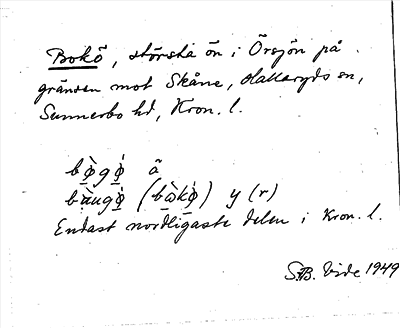 Bokö, största ön i Örsjön på
gränsen mot Skåne, Hallaryds sn,
Sunnerbo hd, Kron. l.
bø̀gø̍ ä
bàugø̍ (bàkø̍) y (r)
Endast nordligaste delen i Kron. l.
S.B. Vide 1949